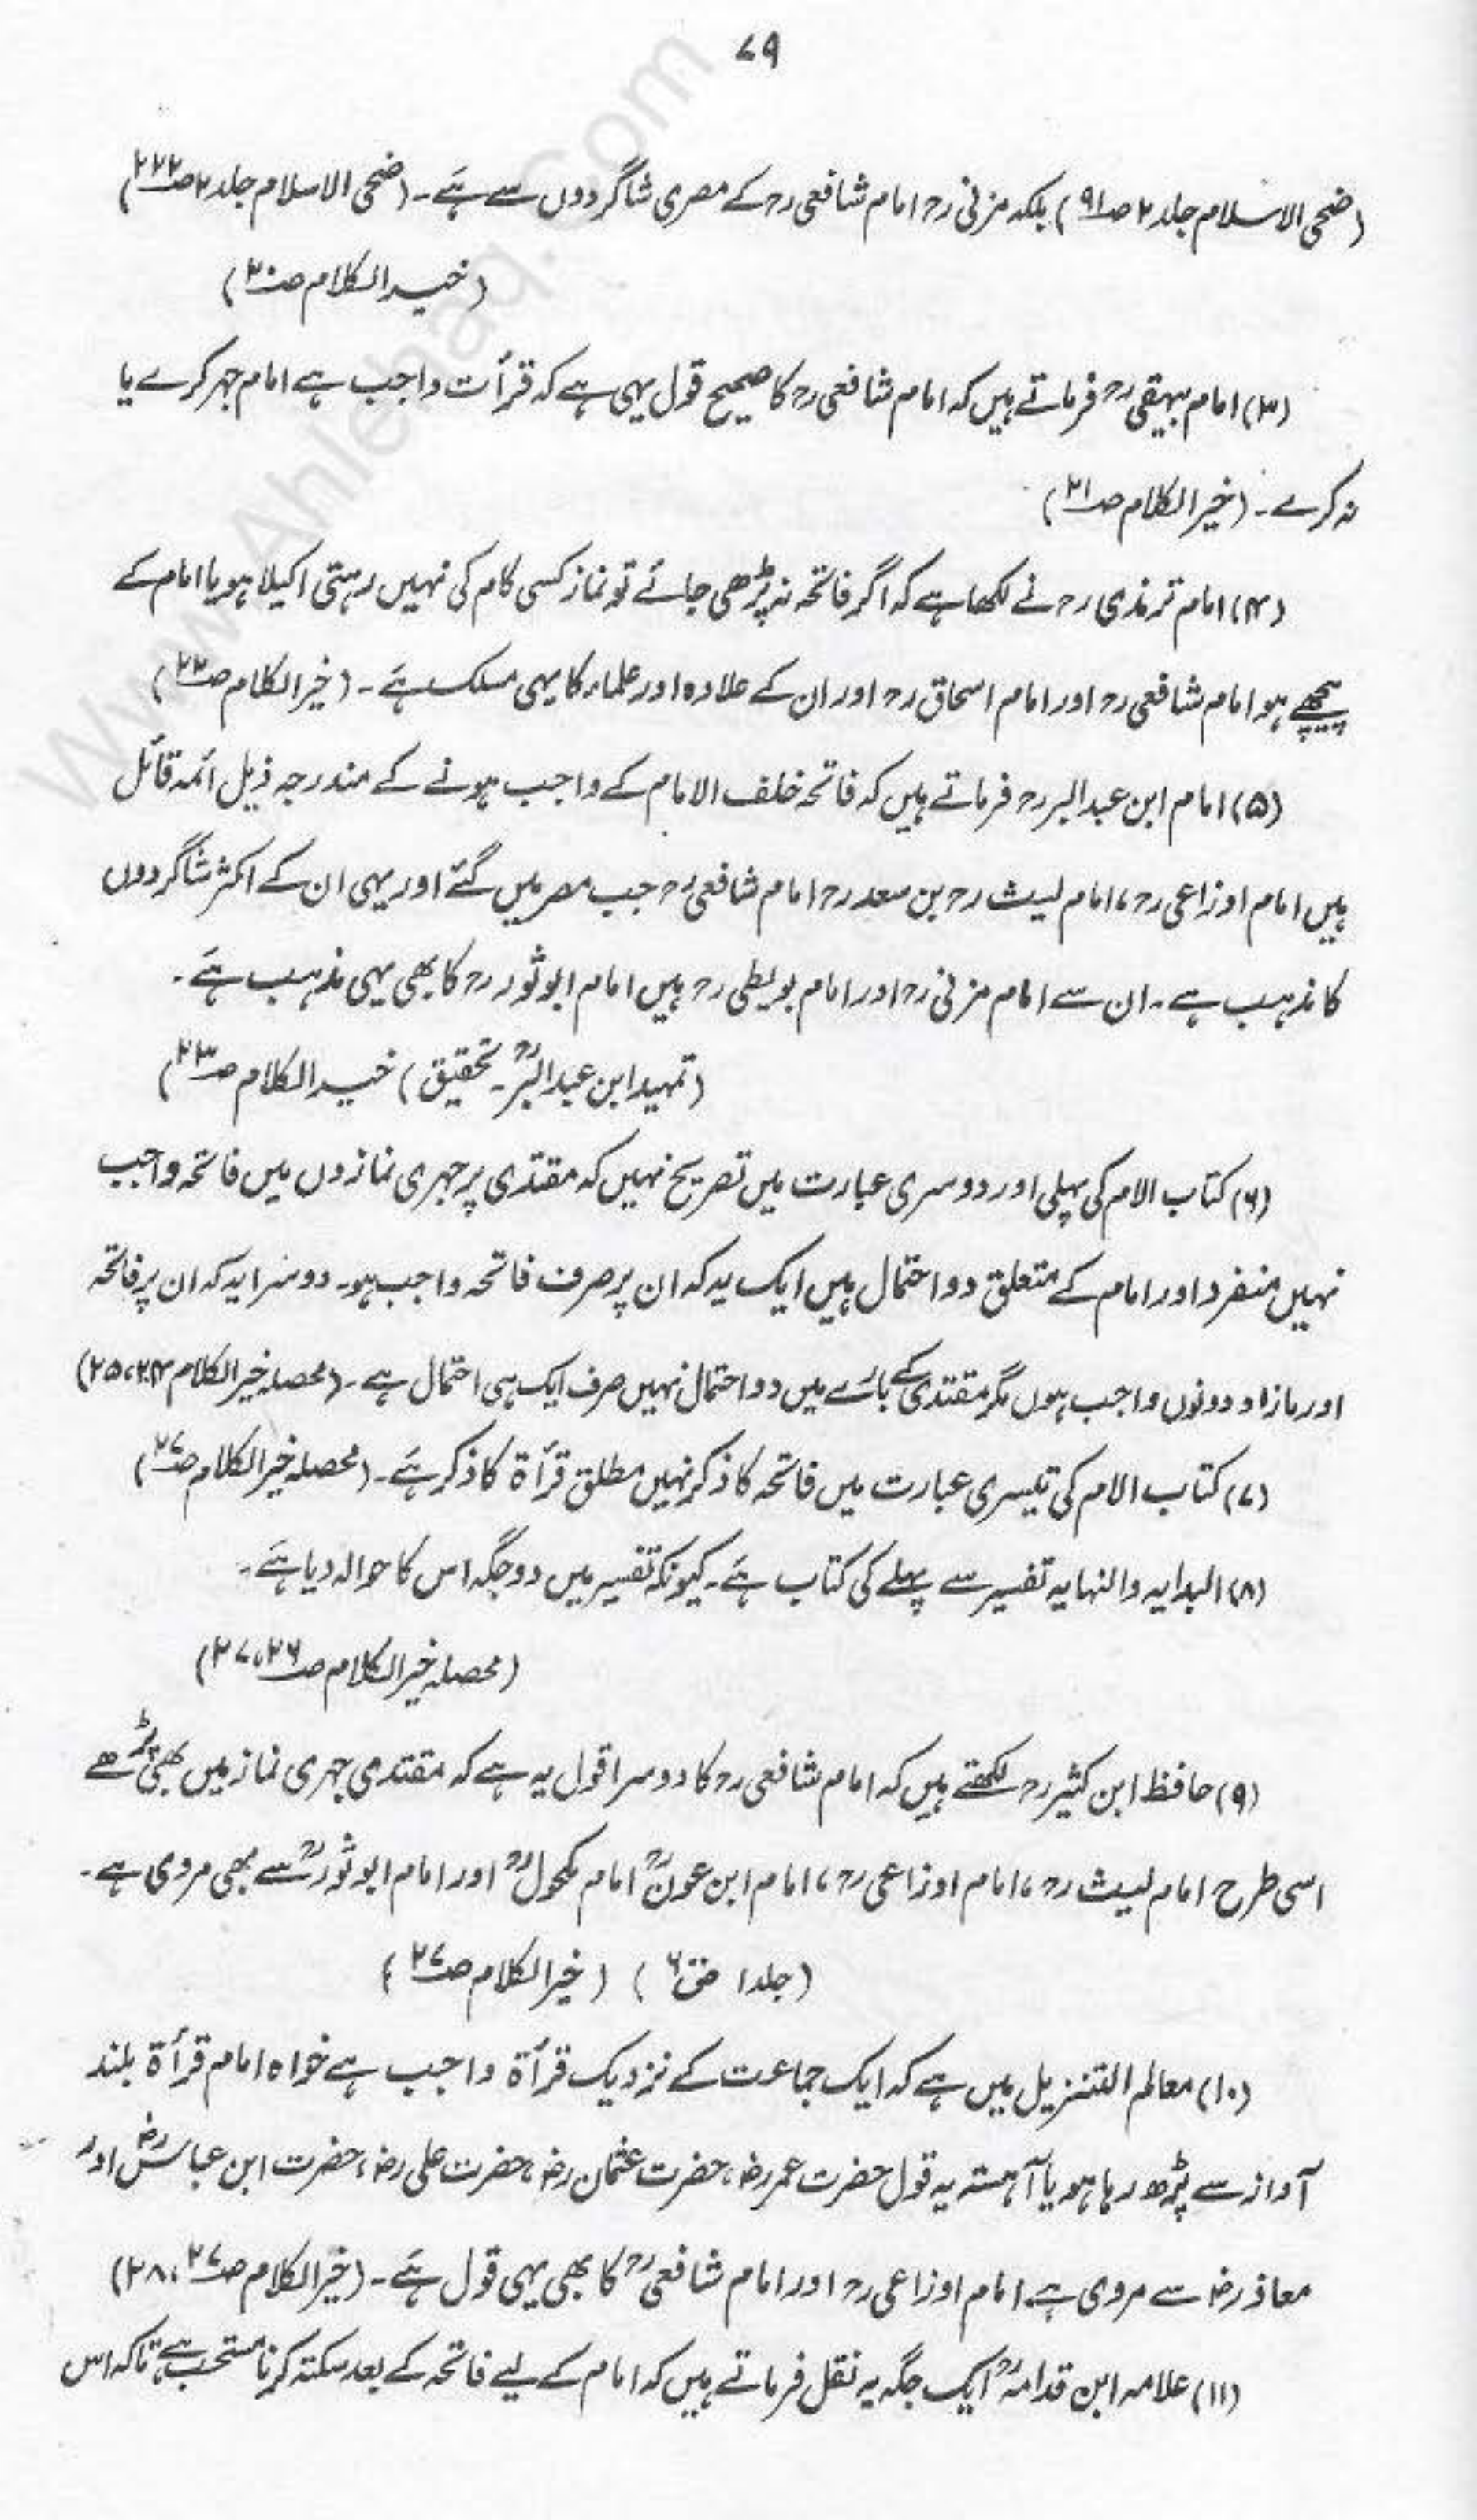 ۷۹
(ضحی الاسلام جلد ۲ صـ۹۱) بلکہ مزنی رح امام شافعی رح کے مصری شاگردوں سے ہے۔ (ضحی الاسلام جلد ۲ صـ۲۲۲)
(خیر الکلام صـ۲۰)
(۳) امام بیہقی رح فرماتے ہیں کہ امام شافعی رح کا صحیح قول یہی ہے کہ قرأت واجب ہے امام جہر کرے یا
نہ کرے۔ (خیر الکلام صـ۲۱)
(۴) امام ترمذی رح نے لکھا ہے کہ اگر فاتحہ نہ پڑھی جائے تو نماز کسی کام کی نہیں رہتی اکیلا ہو یا امام کے
پیچھے ہو امام شافعی رح اور امام اسحاق رح اور ان کے علاوہ اور علماء کا یہی مسلک ہے۔ (خیر الکلام صـ۲۲)
(۵) امام ابن عبد البر رح فرماتے ہیں کہ فاتحہ خلف الامام کے واجب ہونے کے مندرجہ ذیل ائمہ قائل
ہیں امام اوزاعی رح، امام لیث رح بن سعد رح امام شافعی رح جب مصر میں گئے اور یہی ان کے اکثر شاگردوں
کا مذہب ہے۔ ان سے امام مزنی رح اور امام بویطی رح ہیں امام ابو ثور رح کا بھی یہی مذہب ہے۔
(تمہید ابن عبد البرؒ۔ تحقیق) خیر الکلام صـ۲۳)
(۶) کتاب الام کی پہلی اور دوسری عبارت میں تصریح نہیں کہ مقتدی پر جہری نمازوں میں فاتحہ واجب
نہیں منفرد اور امام کے متعلق دو احتمال ہیں ایک یہ کہ ان پر صرف فاتحہ واجب ہو۔ دوسرا یہ کہ ان پر فاتحہ
اور مازاد دونوں واجب ہوں مگر مقتدی کے بارے میں دو احتمال نہیں صرف ایک ہی احتمال ہے۔ (محصلہ خیر الکلام ۲۴، ۲۵)
(۷) کتاب الام کی تیسری عبارت میں فاتحہ کا ذکر نہیں مطلق قرأۃ کا ذکر ہے۔ (محصلہ خیر الکلام صـ۲۷)
(۸) البدایہ والنہایہ تفسیر سے پہلے کی کتاب ہے۔ کیونکہ تفسیر میں دو جگہ اس کا حوالہ دیا ہے۔
(محصلہ خیر الکلام صـ۲۶، ۲۷)
(۹) حافظ ابن کثیر رح لکھتے ہیں کہ امام شافعی رح کا دوسرا قول یہ ہے کہ مقتدی جہری نماز میں بھی پڑھے
اسی طرح امام لیث رح، امام اوزاعی رح، امام ابن عونؒ امام مکحولؒ اور امام ابو ثورؒ سے بھی مروی ہے۔
(جلد ۱ صـ۶) (خیر الکلام صـ۲۷)
(۱۰) معالم التنزیل میں ہے کہ ایک جماعت کے نزدیک قرأۃ واجب ہے خواہ امام قرأۃ بلند
آواز سے پڑھ رہا ہو یا آہستہ یہ قول حضرت عمر رض، حضرت عثمان رض، حضرت علی رض، حضرت ابن عباس رض اور
معاذ رض سے مروی ہے۔ امام اوزاعی رح اور امام شافعی رح کا بھی یہی قول ہے۔ (خیر الکلام صـ۲۷، ۲۸)
(۱۱) علامہ ابن قدامہؒ ایک جگہ یہ نقل فرماتے ہیں کہ امام کے لیے فاتحہ کے بعد سکتہ کرنا مستحب ہے تاکہ اس
www.Ahlehaq.Com